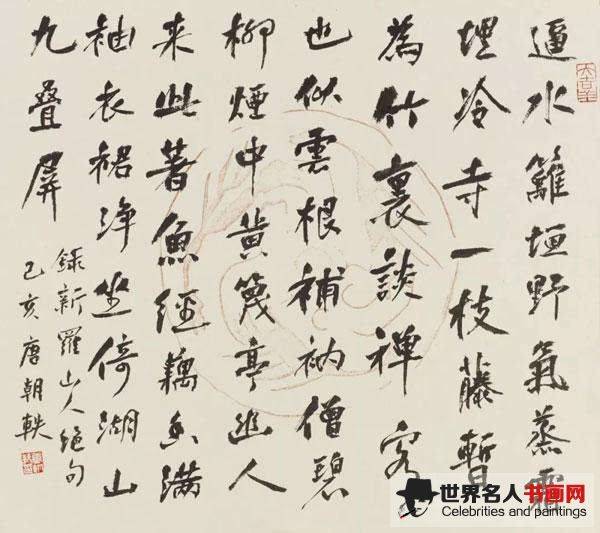 逼水籬垣野氣蒸霜
埋冷寺一枝藤暫
為竹裏談禪客
也似雲根補衲僧碧
柳煙中黄篾亭人
来此著魚經藕香滿
袖衣裙淨坐倚湖山
九叠屏
録新羅山人絕句
己亥唐朝軼
大吉羊
世界名人书画网
Celebrities and paintings